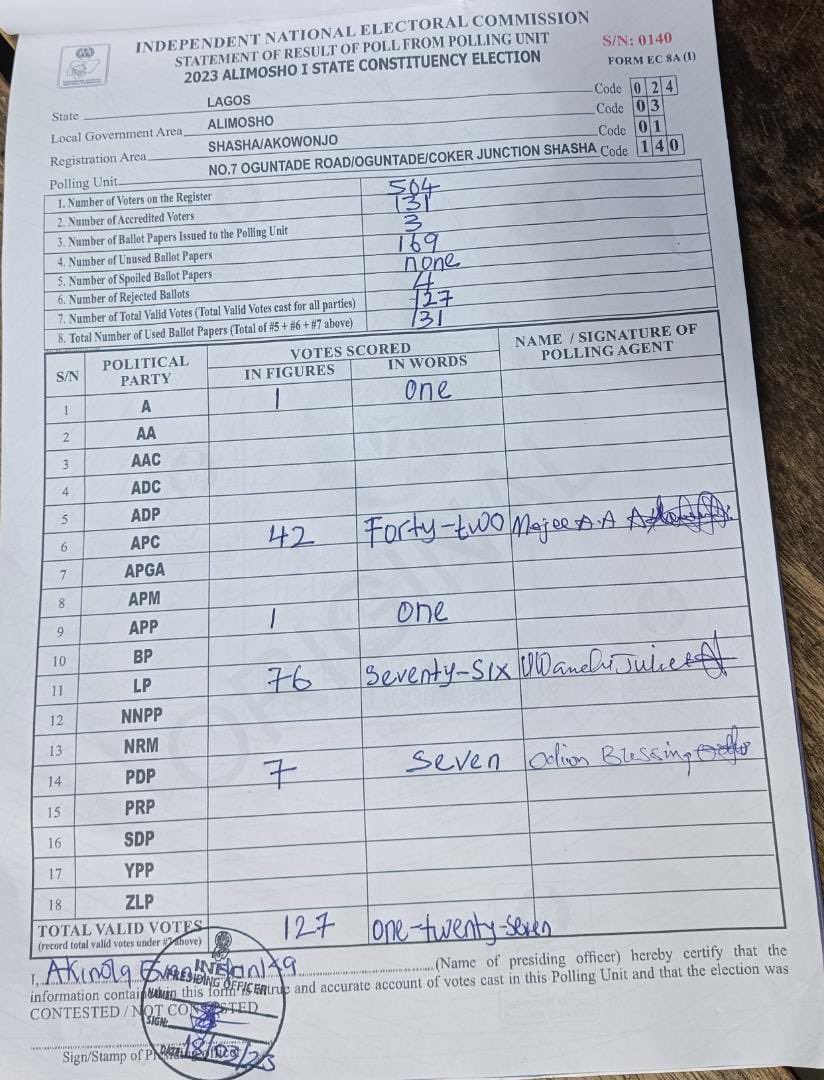 INDEPENDENT NATIONAL ELECTORAL COMMISSION
STATEMENT OF RESULT OF POLL FROM POLLING UNIT
2023 ALIMOSHO I STATE CONSTITUENCY ELECTION
S/N: 0140
FORM EC 8A (I)
State LAGOS Code 024
Local Government Area ALIMOSHO Code 03
Registration Area SHASHA/AKOWONJO Code 01
Polling Unit NO.7 OGUNTADE ROAD/OGUNTADE/COKER JUNCTION SHASHA Code 140
1. Number of Voters on the Register 504
2. Number of Accredited Voters 131
3. Number of Ballot Papers Issued to the Polling Unit 3
4. Number of Unused Ballot Papers 169
5. Number of Spoiled Ballot Papers none
6. Number of Rejected Ballots 4
7. Number of Total Valid Votes (Total Valid Votes cast for all parties) 127
8. Total Number of Used Ballot Papers (Total of #5 + #6 + #7 above) 131
S/N POLITICAL PARTY VOTES SCORED NAME / SIGNATURE OF POLLING AGENT
IN FIGURES IN WORDS
1 A 1 one
2 AA
3 AAC
4 ADC
5 ADP
6 APC 42 Forty-two Mojeed A.A
7 APGA
8 APM
9 APP 1 one
10 BP
11 LP 76 Seventy-Six Juliet
12 NNPP
13 NRM
14 PDP 7 Seven Odion Blessing
15 PRP
16 SDP
17 YPP
18 ZLP
TOTAL VALID VOTES 127 one-twenty-seven
(record total valid votes under #7 above)
I, Akinola (Name of presiding officer) hereby certify that the
information contained in this form is true and accurate account of votes cast in this Polling Unit and that the election was
CONTESTED / NOT CONTESTED
INEC
PRESIDING OFFICER
NAME:
SIGN:
DATE: 18/03/23
Sign/Stamp of Presiding Officer